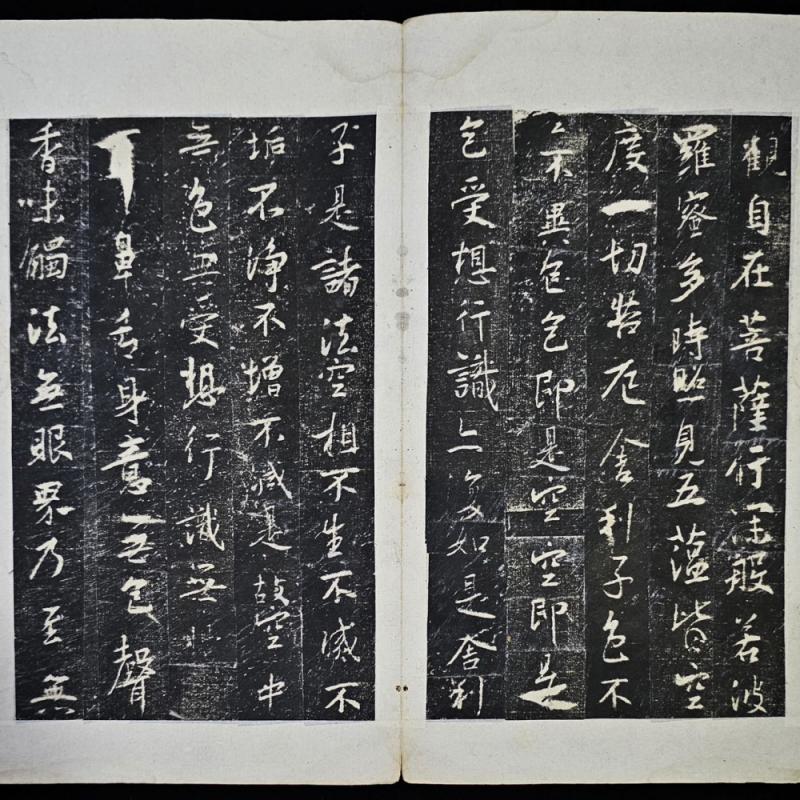 觀自在菩薩行深般若波
羅蜜多時照見五蘊皆空
度一切苦厄舍利子色不
不異色色即是空空即是
色受想行識亦復如是舍利
子是諸法空相不生不滅不
垢不淨不增不減是故空中
無色無受想行識無
鼻舌身意無色聲
香味觸法無眼界乃至無